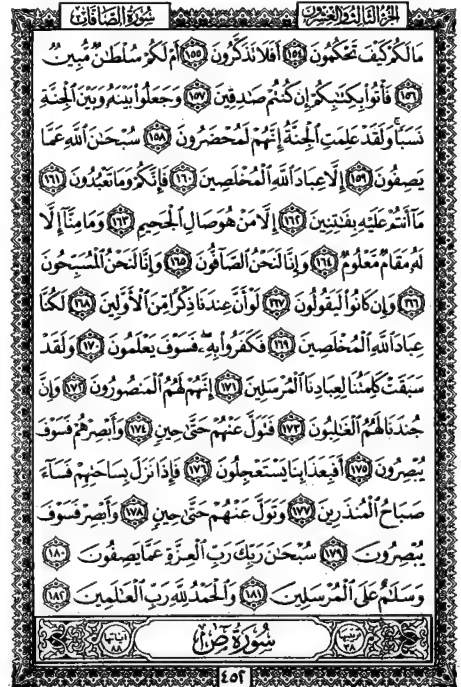 الجزء الثالث والعشرون سورة الصافات
مَا لَكُمْ كَيْفَ تَحْكُمُونَ ١٥٤ أَفَلَا تَذَكَّرُونَ ١٥٥ أَمْ لَكُمْ سُلْطَانٌ مُّبِينٌ
١٥٦ فَأْتُوا بِكِتَابِكُمْ إِن كُنتُمْ صَادِقِينَ ١٥٧ وَجَعَلُوا بَيْنَهُ وَبَيْنَ الْجِنَّةِ
نَسَبًا ۚ وَلَقَدْ عَلِمَتِ الْجِنَّةُ إِنَّهُمْ لَمُحْضَرُونَ ١٥٨ سُبْحَانَ اللَّهِ عَمَّا
يَصِفُونَ ١٥٩ إِلَّا عِبَادَ اللَّهِ الْمُخْلَصِينَ ١٦٠ فَإِنَّكُمْ وَمَا تَعْبُدُونَ ١٦١
مَا أَنتُمْ عَلَيْهِ بِفَاتِنِينَ ١٦٢ إِلَّا مَنْ هُوَ صَالِ الْجَحِيمِ ١٦٣ وَمَا مِنَّا إِلَّا
لَهُ مَقَامٌ مَّعْلُومٌ ١٦٤ وَإِنَّا لَنَحْنُ الصَّافُّونَ ١٦٥ وَإِنَّا لَنَحْنُ الْمُسَبِّحُونَ
١٦٦ وَإِن كَانُوا لَيَقُولُونَ ١٦٧ لَوْ أَنَّ عِندَنَا ذِكْرًا مِّنَ الْأَوَّلِينَ ١٦٨ لَكُنَّا
عِبَادَ اللَّهِ الْمُخْلَصِينَ ١٦٩ فَكَفَرُوا بِهِ ۖ فَسَوْفَ يَعْلَمُونَ ١٧٠ وَلَقَدْ
سَبَقَتْ كَلِمَتُنَا لِعِبَادِنَا الْمُرْسَلِينَ ١٧١ إِنَّهُمْ لَهُمُ الْمَنصُورُونَ ١٧٢ وَإِنَّ
جُندَنَا لَهُمُ الْغَالِبُونَ ١٧٣ فَتَوَلَّ عَنْهُمْ حَتَّىٰ حِينٍ ١٧٤ وَأَبْصِرْهُمْ فَسَوْفَ
يُبْصِرُونَ ١٧٥ أَفَبِعَذَابِنَا يَسْتَعْجِلُونَ ١٧٦ فَإِذَا نَزَلَ بِسَاحَتِهِمْ فَسَاءَ
صَبَاحُ الْمُنذَرِينَ ١٧٧ وَتَوَلَّ عَنْهُمْ حَتَّىٰ حِينٍ ١٧٨ وَأَبْصِرْ فَسَوْفَ
يُبْصِرُونَ ١٧٩ سُبْحَانَ رَبِّكَ رَبِّ الْعِزَّةِ عَمَّا يَصِفُونَ ١٨٠
وَسَلَامٌ عَلَى الْمُرْسَلِينَ ١٨١ وَالْحَمْدُ لِلَّهِ رَبِّ الْعَالَمِينَ ١٨٢
ترتيبها ٣٨ سورة ص آياتها ٨٨
٤٥٢